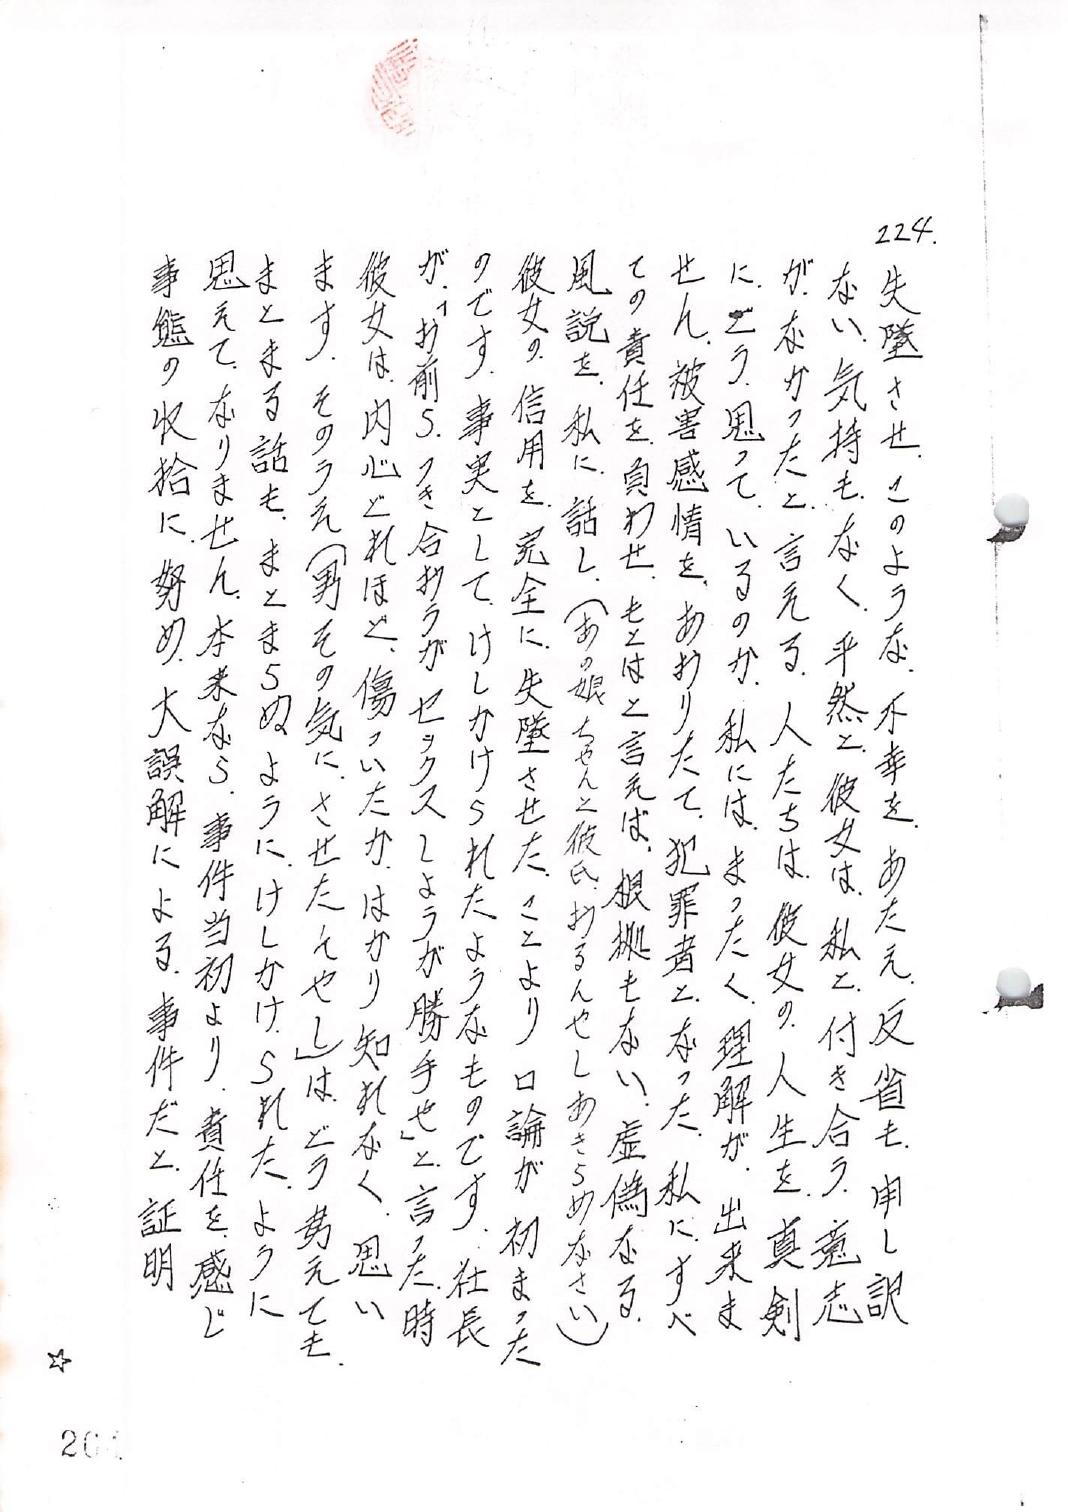 224.
失墜させ、このような、不幸を、あたえ、反省も、申し訳
ない、気持もなく、平然と、彼女は、私と、付き合う、意志
が、なかったと、言える、人たちは、彼女の、人生を、真剣
に、どう、思って、いるのか、私には、まったく、理解が、出来ま
せん、被害感情を、あおりたて、犯罪者と、なった、私に、すべ
ての、責任を、負わせ、もとはと言えば、根拠もない、虚偽なる、
風説を、私に、話し、(あの娘ちゃんと彼氏、おるんやしあきらめなさい)
彼女の、信用を、完全に、失墜させた、ことより、口論が、初まった
のです、事実として、けしかけられたようなものです、社長
が、「お前ら、つき合おうが、セックスしようが勝手せ」と、言った、時
彼女は、内心どれほど、傷ついたか、はかり、知れなく、思い
ます、そのうえ(男その気に、させたんやし」は、どう考えても、
まとまる話も、まとまらぬように、けしかけ、られた、ように
思えて、なりません、本来なら、事件当初より、責任を、感じ
事態の収拾に、努め、大誤解による、事件だと、証明
☆